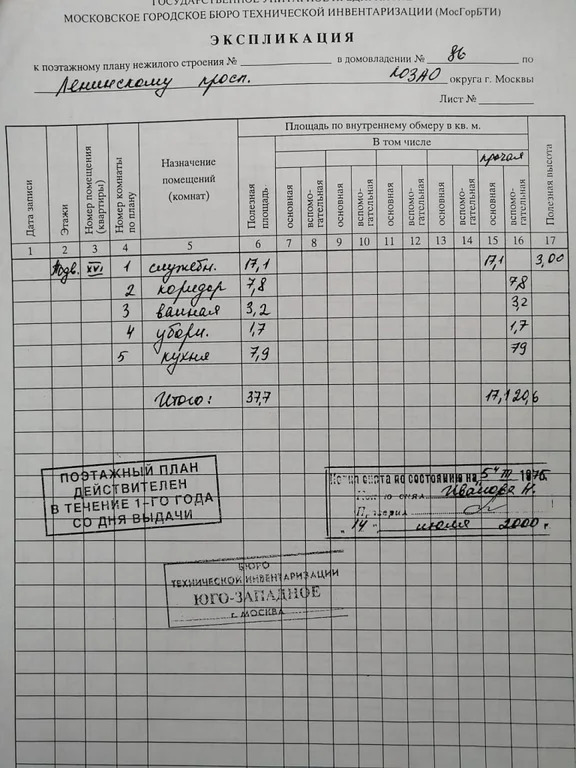 МОСКОВСКОЕ ГОРОДСКОЕ БЮРО ТЕХНИЧЕСКОЙ ИНВЕНТАРИЗАЦИИ (МосГорБТИ)
ЭКСПЛИКАЦИЯ
к поэтажному плану нежилого строения № в домовладении № 86 по
Ленинскому просп. ЮЗАО округа г. Москвы
Лист №
Дата записи
Этажи
Номер помещения (квартиры)
Номер комнаты по плану
Назначение помещений (комнат)
Площадь по внутреннему обмеру в кв. м.
Полезная площадь
В том числе
прочая
основная
вспомогательная
основная
вспомогательная
основная
вспомогательная
основная
вспомогательная
основная
вспомогательная
Полезная высота
1 2 3 4 5 6 7 8 9 10 11 12 13 14 15 16 17
Подв. XVI 1 служебн. 17,1 17,1 3,00
2 коридор 7,8 7,8
3 ванная 3,2 3,2
4 уборн. 1,7 1,7
5 кухня 7,9 79
Итого: 37,7 17,1 20,6
ПОЭТАЖНЫЙ ПЛАН
ДЕЙСТВИТЕЛЕН
В ТЕЧЕНИЕ 1-ГО ГОДА
СО ДНЯ ВЫДАЧИ
Копия снята по состоянию на
Иванова Н.
14 июля 2000 г
БЮРО
ТЕХНИЧЕСКОЙ ИНВЕНТАРИЗАЦИИ
ЮГО-ЗАПАДНОЕ
г. МОСКВА